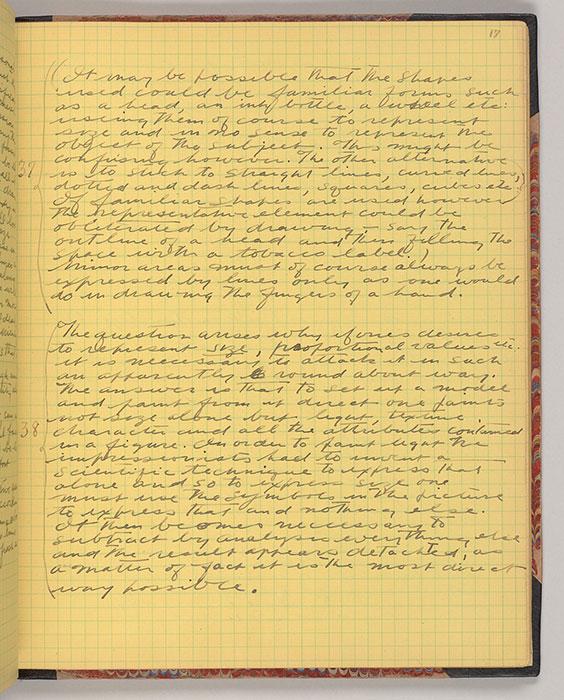 17
(It may be possible that the shapes
used could be familiar forms such
as a head, an ink bottle, a wheel etc:
useing them of course to represent
size and in no sense to represent the
object of the subject. This might be
37
confusing however. The other alternative
is to stick to straight lines, curved lines,
dotted and dash lines, squares, cubes etc.
If familiar shapes are used however
the representative element could be
obliterated by drawing – say the
outline of a head and then filling the
space with a tobacco label.)
Minor areas must of course always be
expressed by lines only as one would
do in drawing the fingers of a hand.
The question arises why if ones desires
to represent size, proportional values etc.
it is necessary to attack it in such
an apparently round about way.
The answer is that to set up a model
and paint from it direct one paints
not size alone but light, texture,
38
character and all the attributes contained
in a figure. In order to paint light the
impressionists had to invent a
scientific technique to express that
alone and so to express size one
must use the symbols in the picture
to express that and nothing else.
It then becomes necessary to
subtract by analysis everything else
and the result appears detached, as
a matter of fact it is the most direct
way possible.